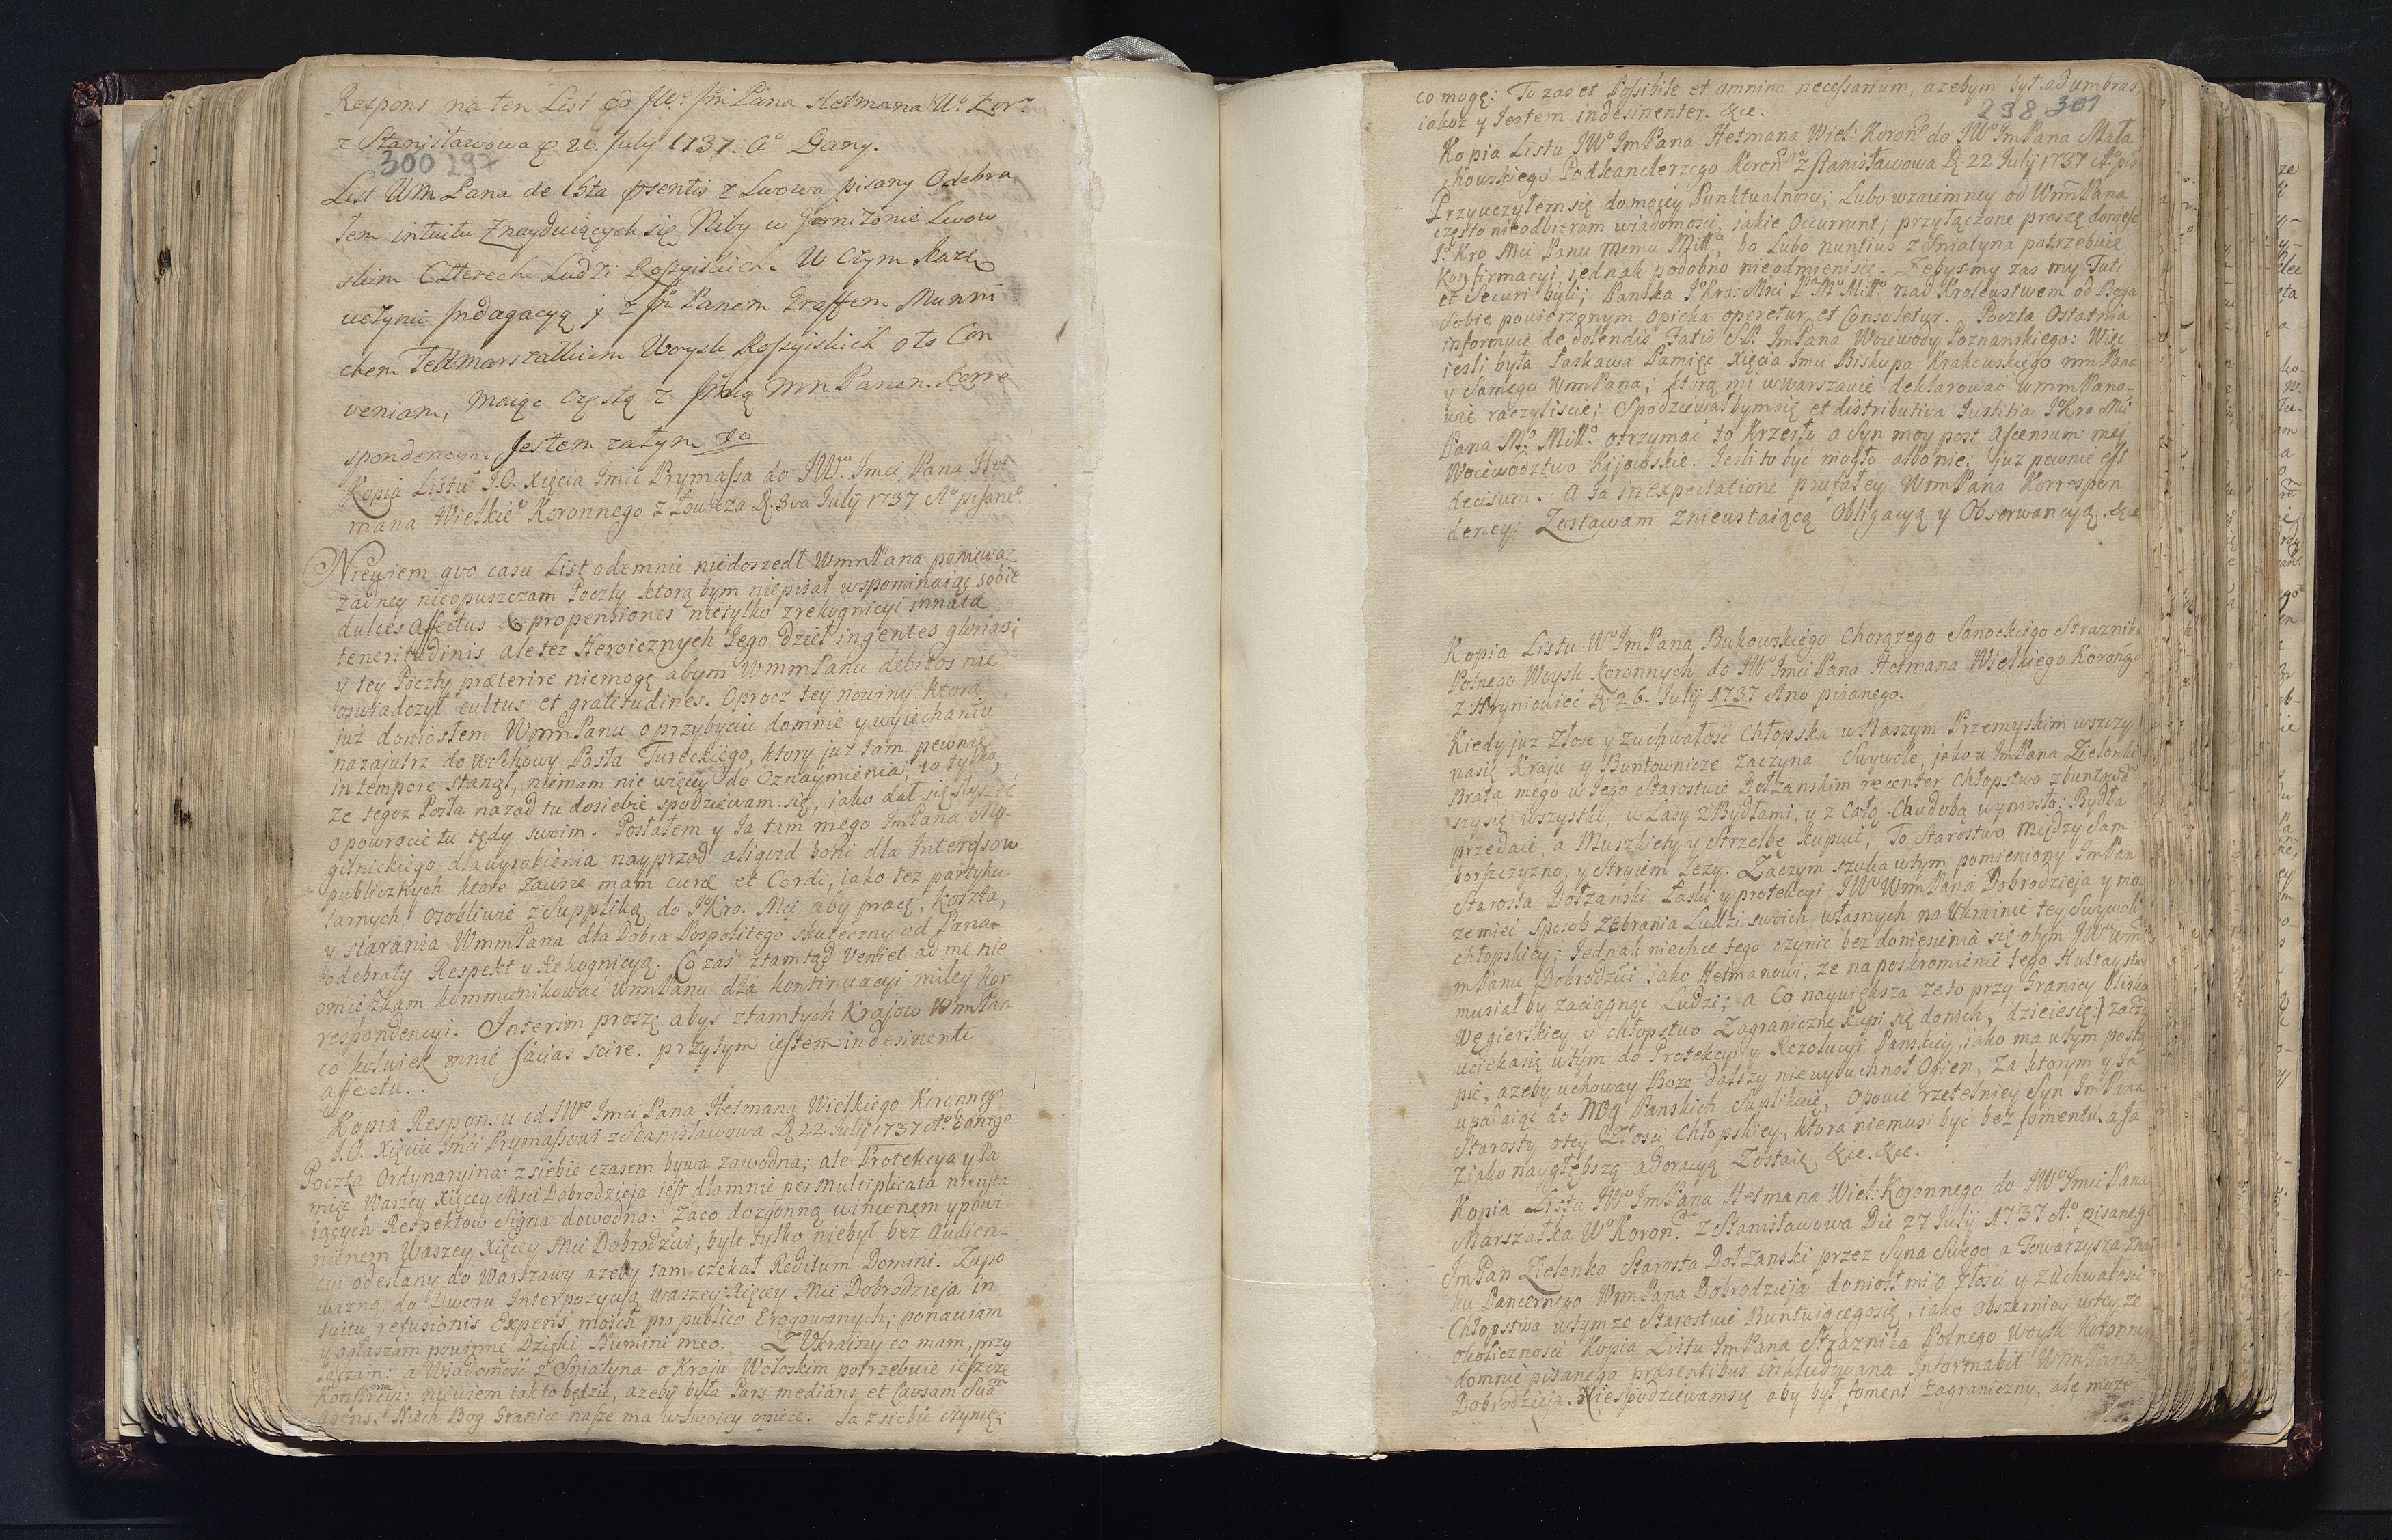 Respons na ten List od JW.º Jm Pana Hetmana W.º Kor.º
z Stanisławowa 22. July 1737. Aº Dany.
300 297
List Wm Pana de 15ta psentis z Lwowa pisany Odebra
łem intuitu Znayduiących się Niby w Garnizonie Lwow
skim Czterech Ludzi Rossyiskich. W czym każę
uczynić Indagacyą y z Jm Panem Graffem Munni
chem Feltmarszałkiem Woysk Rossyiskich o to Con
veniam, maiąc częstą z Jmcią mm Panem Corre
spondencyą. Jestem zatym &c
Kopia Listu J.O. Xięcia Imci Prymassa do JW.º Imci Pana Het
mana Wielkiegº Koronnego z Łowicza D. 3va Julÿ 1737 Aº pisaneº.
Niewiem quo casu List odemnie niedoszedł WmmPana ponieważ
żadney nieopuszczam Poczty ktorą bym niepisał wspominaiąc sobie
dulces affectus & propensiones nietylko z rekognicyi innatæ
teneritudinis ale też Heroicznych Jego dzieł ingentes glorias;
y tey Poczty præterire niemogę abym WmmPanu debitos nie
oswiadczył cultus et gratitudines. Oprocz tey nowiny ktorą
już doniosłem WmmPanu o przybyciu do mnie y wyiechaniu
nazajutrz do Wchowy Posła Tureckiego, ktory już tam pewnie
in tempore stanął, niemam nic więcey do Oznaymienia, to tylko,
że tegoż Posła nazad tu do siebie spodziewam się, jako dał się słyszeć
o powrocie tu tędy swoim. Posłałem y Ja tam mego ImPana Mo-
gilnickiego dla wyrobienia nayprzod aliquid boni dla Interessow
publicznych ktore zawsze mam curæ et Cordi, jako też partyku
larnych osobliwie z Suppliką do JºKro. Mci aby pracę, koszta,
y starania WmmPana dla Dobra Pospolitego skuteczny od Pana
odebrały Respekt y Rekognicyą. Co zaś ztamtąd veniet ad me nie
omieszkam kommunikować WmmPanu dla kontinuacyi miłey kor
respondencyi. Interim proszę abyś z tamtych Krajow WmmPan
co kolwiek mnie facias scire. przytym iestem indesinenti
affectu.
Kopia Responsu od JWº Imci Pana Hetmana Wielkiego Koronnego
J.O. Xięciu Imci Prymassowi z Stanisławowa D 22 Julÿ 1737 Aº. danego
Poczta Ordynaryina z siebie czasem bywa zawodna; ale Protekcya y Pa
mięć Waszey Xięcey Mści Dobrodzieja iest dla mnie per multiplicata nieusta
iących Respektow Signa dowodna: Za co dozgonną winienem y powi
nienem Waszey Xięcey Mci Dobrodziui, byle tylko niebył bez Audien-
cyi odesłany do Warszawy ażeby tam czekał Reditum Domini. Za po
ważną do Dworu Interpozycyą Waszey Xięcey Mci Dobrodzieja in
tuitu refusionis Expens moich pro publico Erogowanych; ponawiam
y ogłaszam powinne Dzięki Numini meo. Z Ukrainy co mam, przy
łączam: a Wiadomość z Sniatyna o Kraju Wołoskim potrzebuie ieszcze
konfirmcyi: niewiem iak to będzie, ażeby była Pars medians et Causam Suã
agens. Niech Bog Granice nasze ma w swoiey opiece. Ja z siebie czynię;
co mogę: To zas et Possibile et omnino necessarium, azebym był ad umbras,
iakoż y Jestem indesinenter. &c.
298 301
Kopia Listu JWº ImPana Hetmana Wiel: Koronº do JWº ImPana Mała
chowskiego Podkanclerzego Koronº z Stanisławowa D. 22 Julÿ 1737 Aº. pis
Przyuczyłem się do moiey Punktualnosci; Lubo wzaiemney od WmPana
często nieodbieram wiadomosci, jakie Occurrunt; przyłączone proszę donieść
Jº Kro Mci Panu Memu Miłº, bo Lubo nuntius z Sniatyna potrzebuie
konfirmacyi, jednak podobno nieodmieni się. Żebysmy zas my Tuti
et Securi byli; Panska Jº Kró: Mści Pª Mº Miłº nad Krolewstwem od Boga
Sobie powierzonym opieka operetur et Consoletur. Poczta Ostatnia
informuie de dolendis Fatis S.P. ImPana Woiewody Poznanskiego: Więc
iesli była Łaskawa Pamięc Xięcia Imci Biskupa Krakowskiego mmPana
y samego WmPana; ktorą mi w Warszawie deklarować WmmPano-
wie raczyliscie; Spodziewał bym się et distributiva Iustitia JºKro Mci
Pana Mº Miłº. otrzymać to Krzesło a Syn moy post Ascensum mei
Woiewodztwo Kijowskie. Jeśli to być mogło albo nie: już pewnie est
decisum. A Ja in expectatione poufałey WmPana Korrespon
dencyi Zostawam z nieustaiącą Obligacyą y Obserwancyą. &c
Kopia Listu Wº ImPana Bukowskiego Chorążego Sanockiego Strażnika
Polnego Woysk Koronnych do JWº Imci Pana Hetmana Wielkiego Korongº
z Hryniowiec D. 26. Julÿ 1737 Ano pisanego.
Kiedy już Złość y zuchwałość Chłopska w Naszym Przemyskim wszczy
na się Kraju y Buntownicze zaczyna Swywole, jako u ImPana Zielonki
Brata mego w Jego Starostwie Dołżanskim recenter Chłopstwo zbuntowa
szy się wszystko, w Lasy z Bydłami, y z całą Chudobą wyniosło: Bydła
przedaie, a Muszkiety y Strzelbę kupuie, To Starostwo między Sam
borszczyzną, y Stryiem Leży. Zaczym szuka w tym pomieniony ImPan
Starosta Dołżanski Łaski y protekcyi JWº WmPana Dobrodzieja y mo-
że mieć sposob zebrania Ludzi swoich własnych na Ukrainie tey Swywoli
chłopskiey; Jednak niechce tego czynić bez doniesienia się o tym JWº Wm
mPanu Dobrodziui jako Hetmanowi, że na poskromienie tego Hultaystwa
musiał by zaciągnąć Ludzi; a co naywiększa że to przy Granicy blisko
Węgierskiey y chłopstwo Zagraniczne kupi się do nich, dziecięcię:) zaczy
ucieka się w tym do Protekcyi y Rezolucyi Panskiey, iako ma w tym postą
pić, ażeby uchoway Boże dalszy niewybuchnoł Ogien, Za ktorym y Ja
upadaiąc do Nog Panskich Suplikuię, opowie rzetelniey Syn ImPana
Starosty o tey Złosci Chłopskiey, ktora niemusi być bez fomentu. a Ja
z iako naygłębszą adoracyą Zostaię &c. &c.
Kopia Listu JWº ImPana Hetmana Wiel: Koronnego do JWº Imci Pana
Marszałka Wº Koronº. z Stanisławowa Die 27 Julÿ 1737 Aº. pisanego
ImPan Zielonka Starosta Dołżanski przez Syna Swego a Towarzysza Zna
ku Pancernego WmmPana Dobrodzieja doniosł mi o złosci y zuchwałosci
Chłopstwa w tymże Starostwie Buntuiącego się, jako obszerniey w teyże
okolicznosci Kopia Listu ImPana Strażnika Polnego Woysk Koronnych
do mnie pisanego præsentibus inkludowana Informabit WmmPana
Dobrodzieja. Niespodziewam się aby był foment zagraniczny, ale może